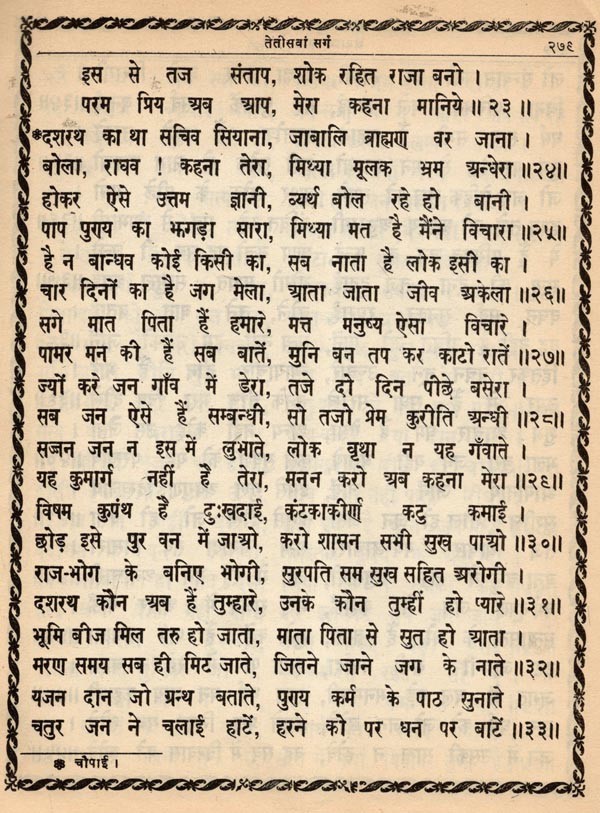 तेतीसवां सर्ग २७९
इस से तज संताप, शोक रहित राजा बनो ।
परम प्रिय अब आप, मेरा कहना मानिये ॥२३॥
❋दशरथ का था सचिव सियाना, जाबालि ब्राह्मण वर जाना ।
बोला, राघव ! कहना तेरा, मिथ्या मूलक भ्रम अन्धेरा ॥२४॥
होकर ऐसे उत्तम ज्ञानी, व्यर्थ बोल रहे हो बानी ।
पाप पुण्य का झगड़ा सारा, मिथ्या मत है मैंने विचारा ॥२५॥
है न बान्धव कोई किसी का, सब नाता है लोक इसी का ।
चार दिनों का है जग मेला, आता जाता जीव अकेला ॥२६॥
सगे मात पिता हैं हमारे, मत्त मनुष्य ऐसा विचारे ।
पामर मन की हैं सब बातें, मुनि बन तप कर काटो रातें ॥२७॥
ज्यों करे जन गाँव में डेरा, तजे दो दिन पीछे बसेरा ।
सब जन ऐसे हैं सम्बन्धी, सो तजो प्रेम कुरीति अन्धी ॥२८॥
सज्जन जन न इस में लुभाते, लोक वृथा न यह गँवाते ।
यह कुमार्ग नहीं है तेरा, मनन करो अब कहना मेरा ॥२९॥
विषम कुपंथ है दुःखदाई, कंटकाकीर्ण कटु कमाई ।
छोड़ इसे पुर वन में जाओ, करो शासन सभी सुख पाओ ॥३०॥
राज-भोग के बनिए भोगी, सुरपति सम सुख सहित अरोगी ।
दशरथ कौन अब हैं तुम्हारे, उनके कौन तुम्हीं हो प्यारे ॥३१॥
भूमि बीज मिल तरु हो जाता, माता पिता से सुत हो आता ।
मरण समय सब ही मिट जाते, जितने जाने जग के नाते ॥३२॥
यजन दान जो ग्रन्थ बताते, पुण्य कर्म के पाठ सुनाते
चतुर जन ने चलाई हाटें, हरने को पर धन पर बाटें ॥३३॥
❋ चौपाई ।